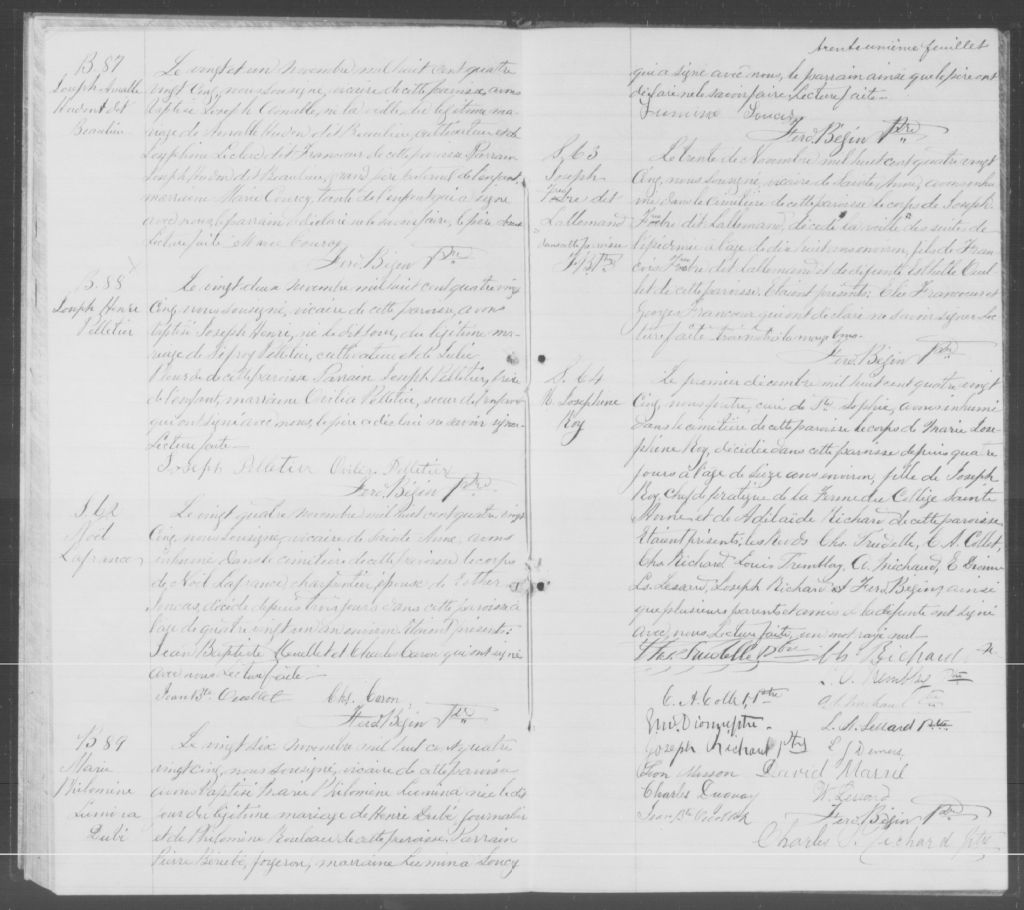 B 87
Joseph Amable
Hudon dit
Beaulieu
Le vingt et un Novembre mil huit cent quatre
vingt cinq, nous soussigné, vicaire de cette paroisse, avons
baptisé Joseph Amable, né la veille, du légitime ma-
riage de Amable Hudon dit Beaulieu, cultivateur et de
Joséphine Leclerc dit Francoeur de cette paroisse. Parrain
Joseph Hudon dit Beaulieu, grand père paternel de l'enfant,
marraine Marie Courcy, tante de l'enfant qui a signé
avec nous, le parrain a déclaré ne le savoir faire, le père
Lecture faite Marie Courcy
Ferd. Bégin Ptre
B. 88
Joseph Henri
Pelletier
Le vingt deux Novembre mil huit cent quatre vingt
cinq, nous soussigné, vicaire de cette paroisse, avons
baptisé Joseph Henri, né le dit jour, du légitime ma-
riage de Pelletier, cultivateur et de
de cette paroisse Parrain Joseph Pelletier, frère
de l'enfant, marraine Pelletier, soeur de l'enfant
qui ont signé avec nous, le père a déclaré ne savoir signer.
Lecture faite
Joseph Pelletier Pelletier
Ferd. Bégin Ptre
S. 62
Noël
Lafrance
Le vingt quatre novembre mil huit cent quatre vingt
cinq, nous soussigné, vicaire de Sainte Anne, avons
inhumé dans le cimetière de cette paroisse le corps
de Noël Lafrance charpentier, époux de Esther
décédé depuis trois jours dans cette paroisse à
l'age de quatre vingt un an environ. Etaient présents:
Jean Baptiste Ouellet et Charles Caron qui ont signé
avec nous. Lecture faite.
Jean Bte Ouellet Chs. Caron
Ferd. Bégin Ptre
B 89
Marie
Philomène
Lumina
Dubé
Le vingt six novembre mil huit cent quatre
vingt cinq, nous soussigné, vicaire de cette paroisse
avons baptisé Marie Philomène Lumina née le dit
jour du légitime mariage de Henri Dubé journalier
et de Philomène Bouleau de cette paroisse. Parrain
Pierre Bérubé, forgeron, marraine Lumina Soucy
trente unième feuillet
qui a signé avec nous, le parrain ainsi que le père ont
déclaré ne le savoir faire. Lecture faite.
Lumina Soucy
Ferd. Bégin Ptre
S. 63
Joseph
dit
Lallemand
dans cette paroisse
F B Ptre
Le trente de Novembre mil huit cent quatre vingt
cinq, nous soussigné, vicaire de Sainte Anne, avons inhu-
mé dans le cimetière de cette paroisse le corps de Joseph
dit Lallemand, décédé la veille des suites de
l'épidémie à l'age de dix huit ans environ, fils de Fran-
çois dit Lallemand et de défunte
let de cette paroisse. Etaient présents: Elie Francoeur et
Georges Francoeur qui ont déclaré ne savoir signer. Lec-
ture faite
Ferd. Bégin Ptre
S. 64
M. Josephine
Roy
Le premier décembre mil huit cent quatre vingt
cinq, nous prêtre, curé de Ste Sophie, avons inhumé
dans le cimetière de cette paroisse le corps de Marie Jose-
phine Roy, décédée dans cette paroisse depuis quatre
jours à l'age de seize ans environ, fille de Joseph
Roy Chef de pratique de la Ferme du Collège Sainte
Anne et de Adelaïde Richard de cette paroisse
Etaient présents, les Revds Chs. Trudelle, C. A. Collet,
Chs Richard, Louis Tremblay, A. Michaud, E. Dionne
Ls. Lessard, Joseph Richard & Ferd Bégin, ainsi
que plusieurs parents et amis de la défunte ont signé
avec nous Lecture faite, un mot rayé nul
Chs. Trudelle Ptre Ch. Richard
Tremblay
C. A. Collet, Ptre A. Michaud
Dionne ptre L. A. Lessard Ptre
Joseph Richard Ptre L. J. Demers
Léon Masson David Marsil
Charles Duguay W. Lessard
Jean Bte Ferd Bégin Ptre
Charles Richard Ptre